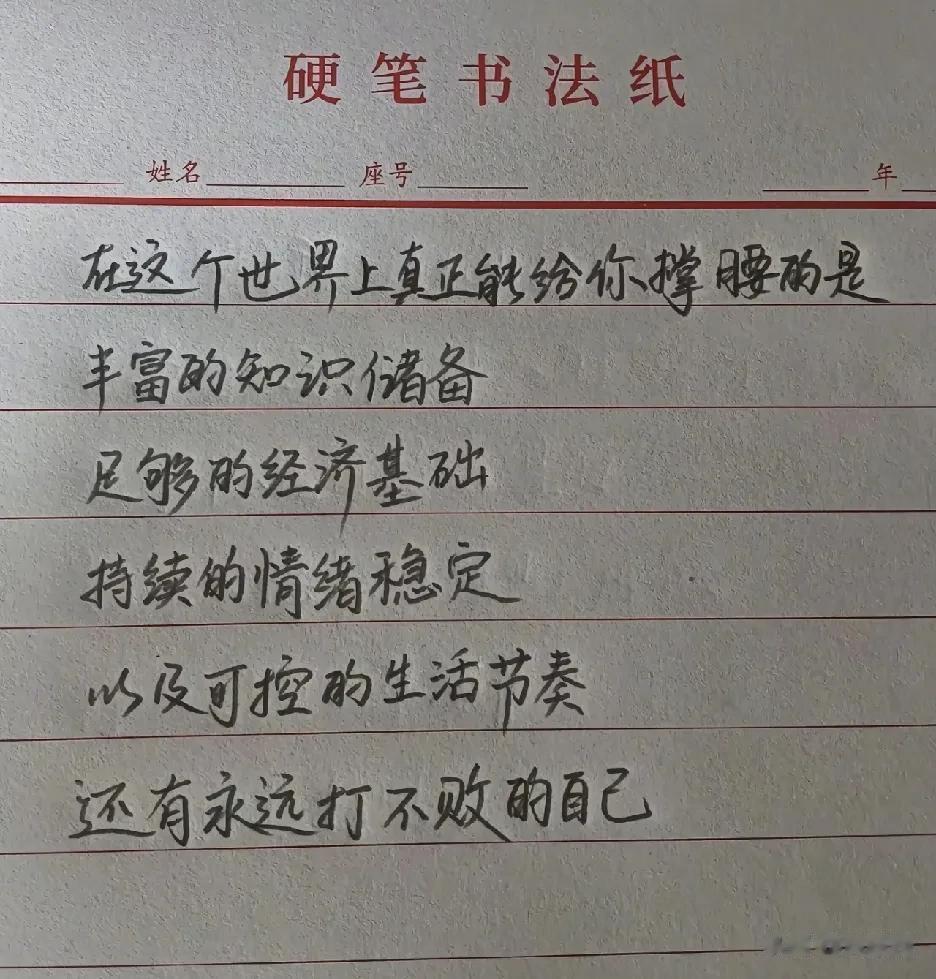 硬笔书法纸
姓名 座号 年
在这个世界上真正能给你撑腰的是
丰富的知识储备
足够的经济基础
持续的情绪稳定
以及可控的生活节奏
还有永远打不败的自己